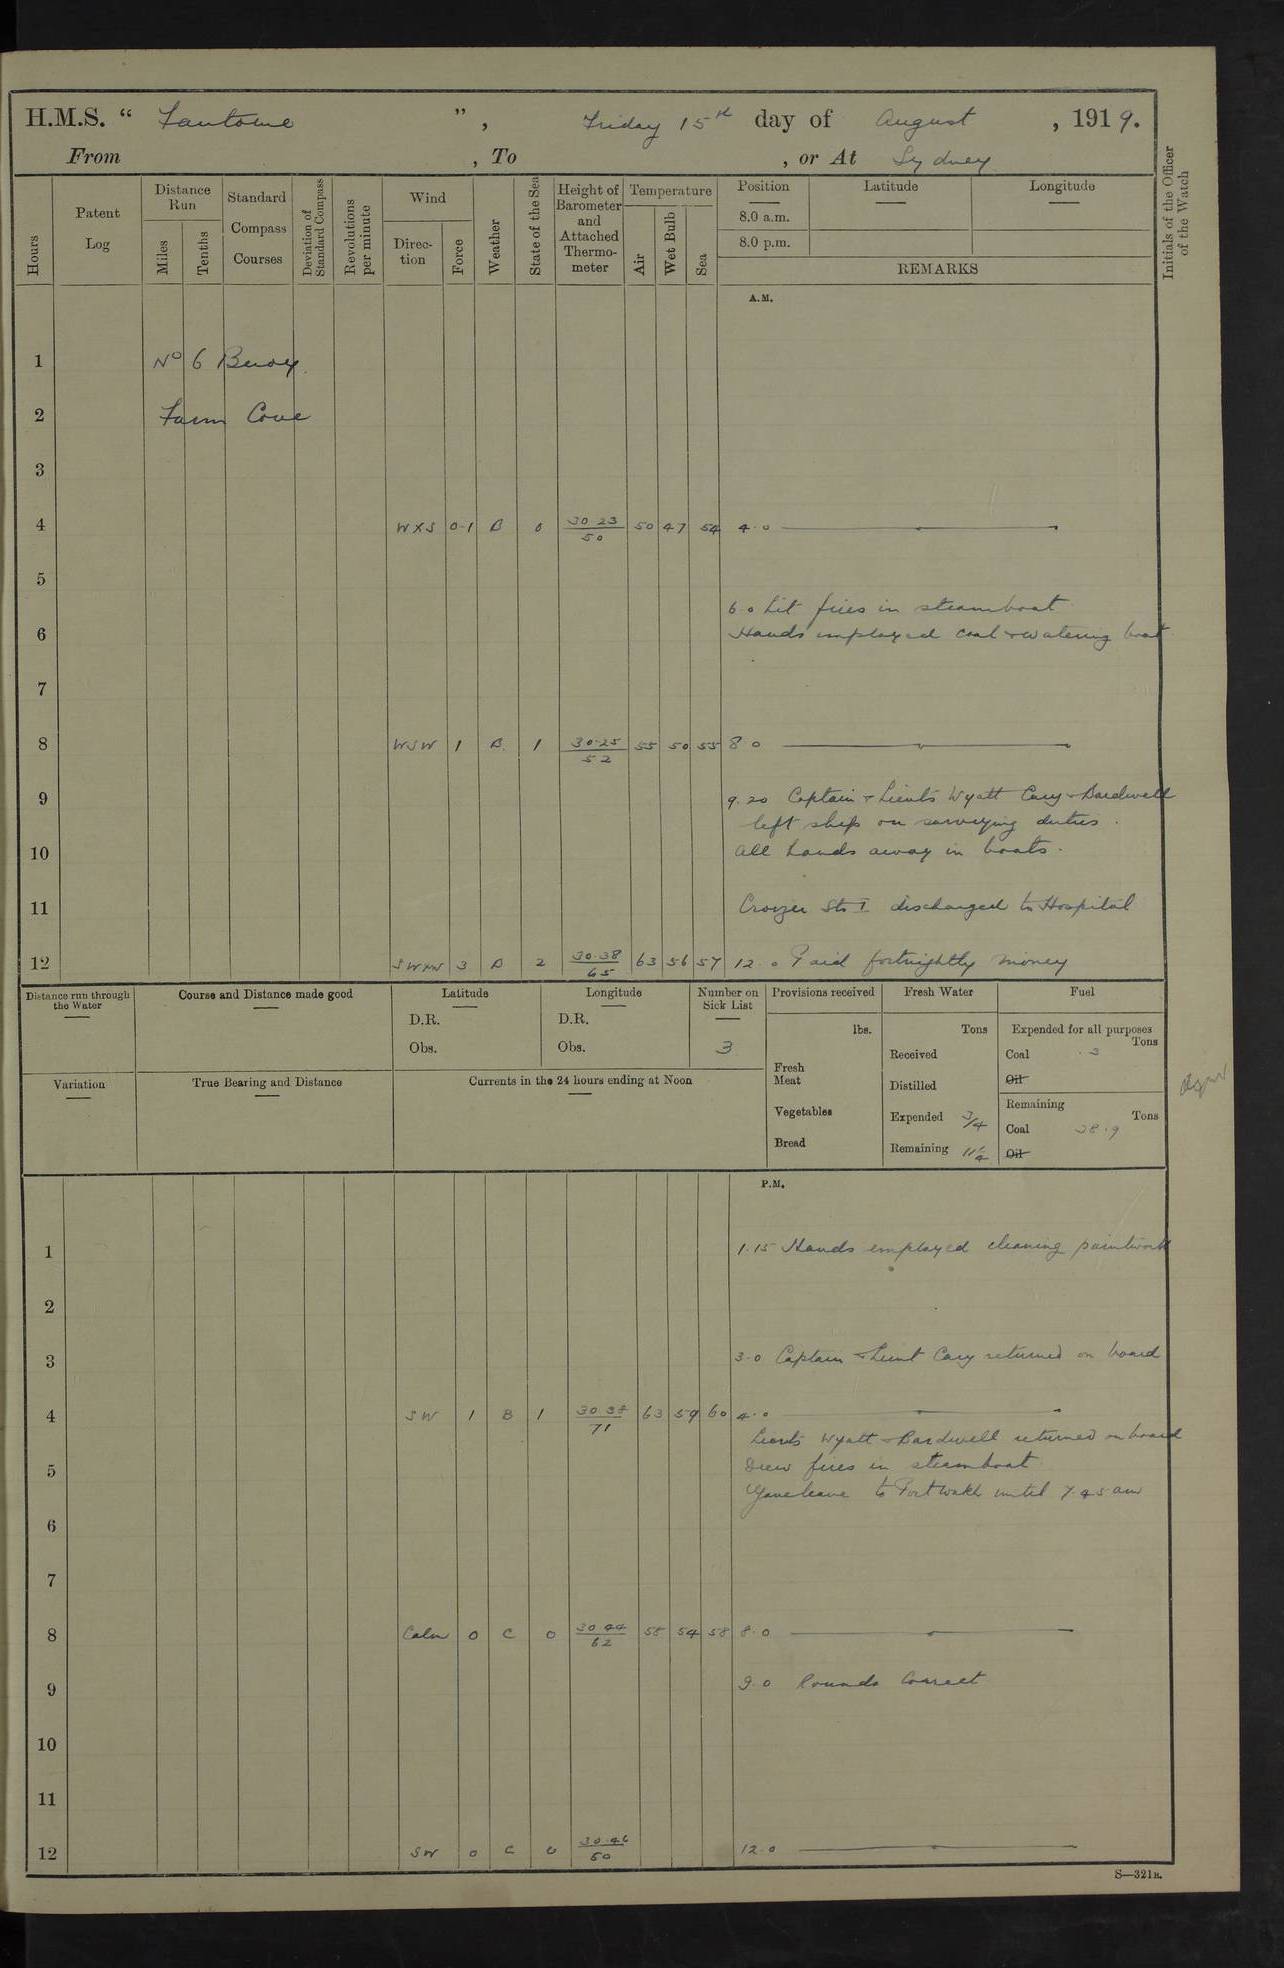 H.M.S. “ Fantome ”, Friday 15th day of August, 1919.
From , To , or At Sydney
Hours
Patent Log
Distance Run
Miles
Tenths
Standard Compass Courses
Deviation of Standard Compass
Revolutions per minute
Wind
Direction
Force
Weather
State of the Sea
Height of Barometer and Attached Thermometer
Temperature
Air
Wet Bulb
Sea
Position
8.0 a.m.
8.0 p.m.
Latitude
Longitude
REMARKS
Initials of the Officer of the Watch
A.M.
1 No 6 Buoy
2 Farm Cove
3
4 WXS 0-1 B 0 30.23/50 50 47 54 4.0
5
6.0 Lit fires in steamboat
6 Hands employed coal & watering boat
7
8 WSW 1 B 1 30.25/52 55 50 55 8.0
9 9.20 Captain & Lieuts Wyatt Cary & Bardwell
left ship on surveying duties.
10 All hands away in boats.
11 Crozier Sto I discharged to Hospital
12 SWXW 3 B 2 30.38/65 63 56 57 12.0 Paid fortnightly money
Distance run through the Water
Course and Distance made good
Latitude
D.R.
Obs.
Longitude
D.R.
Obs.
Number on Sick List
3
Provisions received
lbs.
Fresh Meat
Vegetables
Bread
Fresh Water
Tons
Received
Distilled
Expended 3/4
Remaining 11 1/4
Fuel
Expended for all purposes
Tons
Coal .3
Oil
Remaining
Tons
Coal 28.9
Oil
Variation
True Bearing and Distance
Currents in the 24 hours ending at Noon
P.M.
1 1.15 Hands employed cleaning paintwork
2
3 3.0 Captain & Lieut Cary returned on board
4 SW 1 B 1 71 63 59 60 4.0
Lieuts Wyatt & Bardwell returned on board
5 Drew fires in steamboat
Gave leave to Port Watch until 7.45 am
6
7
8 Calm 0 C 0 30.44/62 58 54 58 8.0
9 9.0 Rounds Correct
10
11
12 SW 0 C 0 30.46/60 12.0
S—321B.